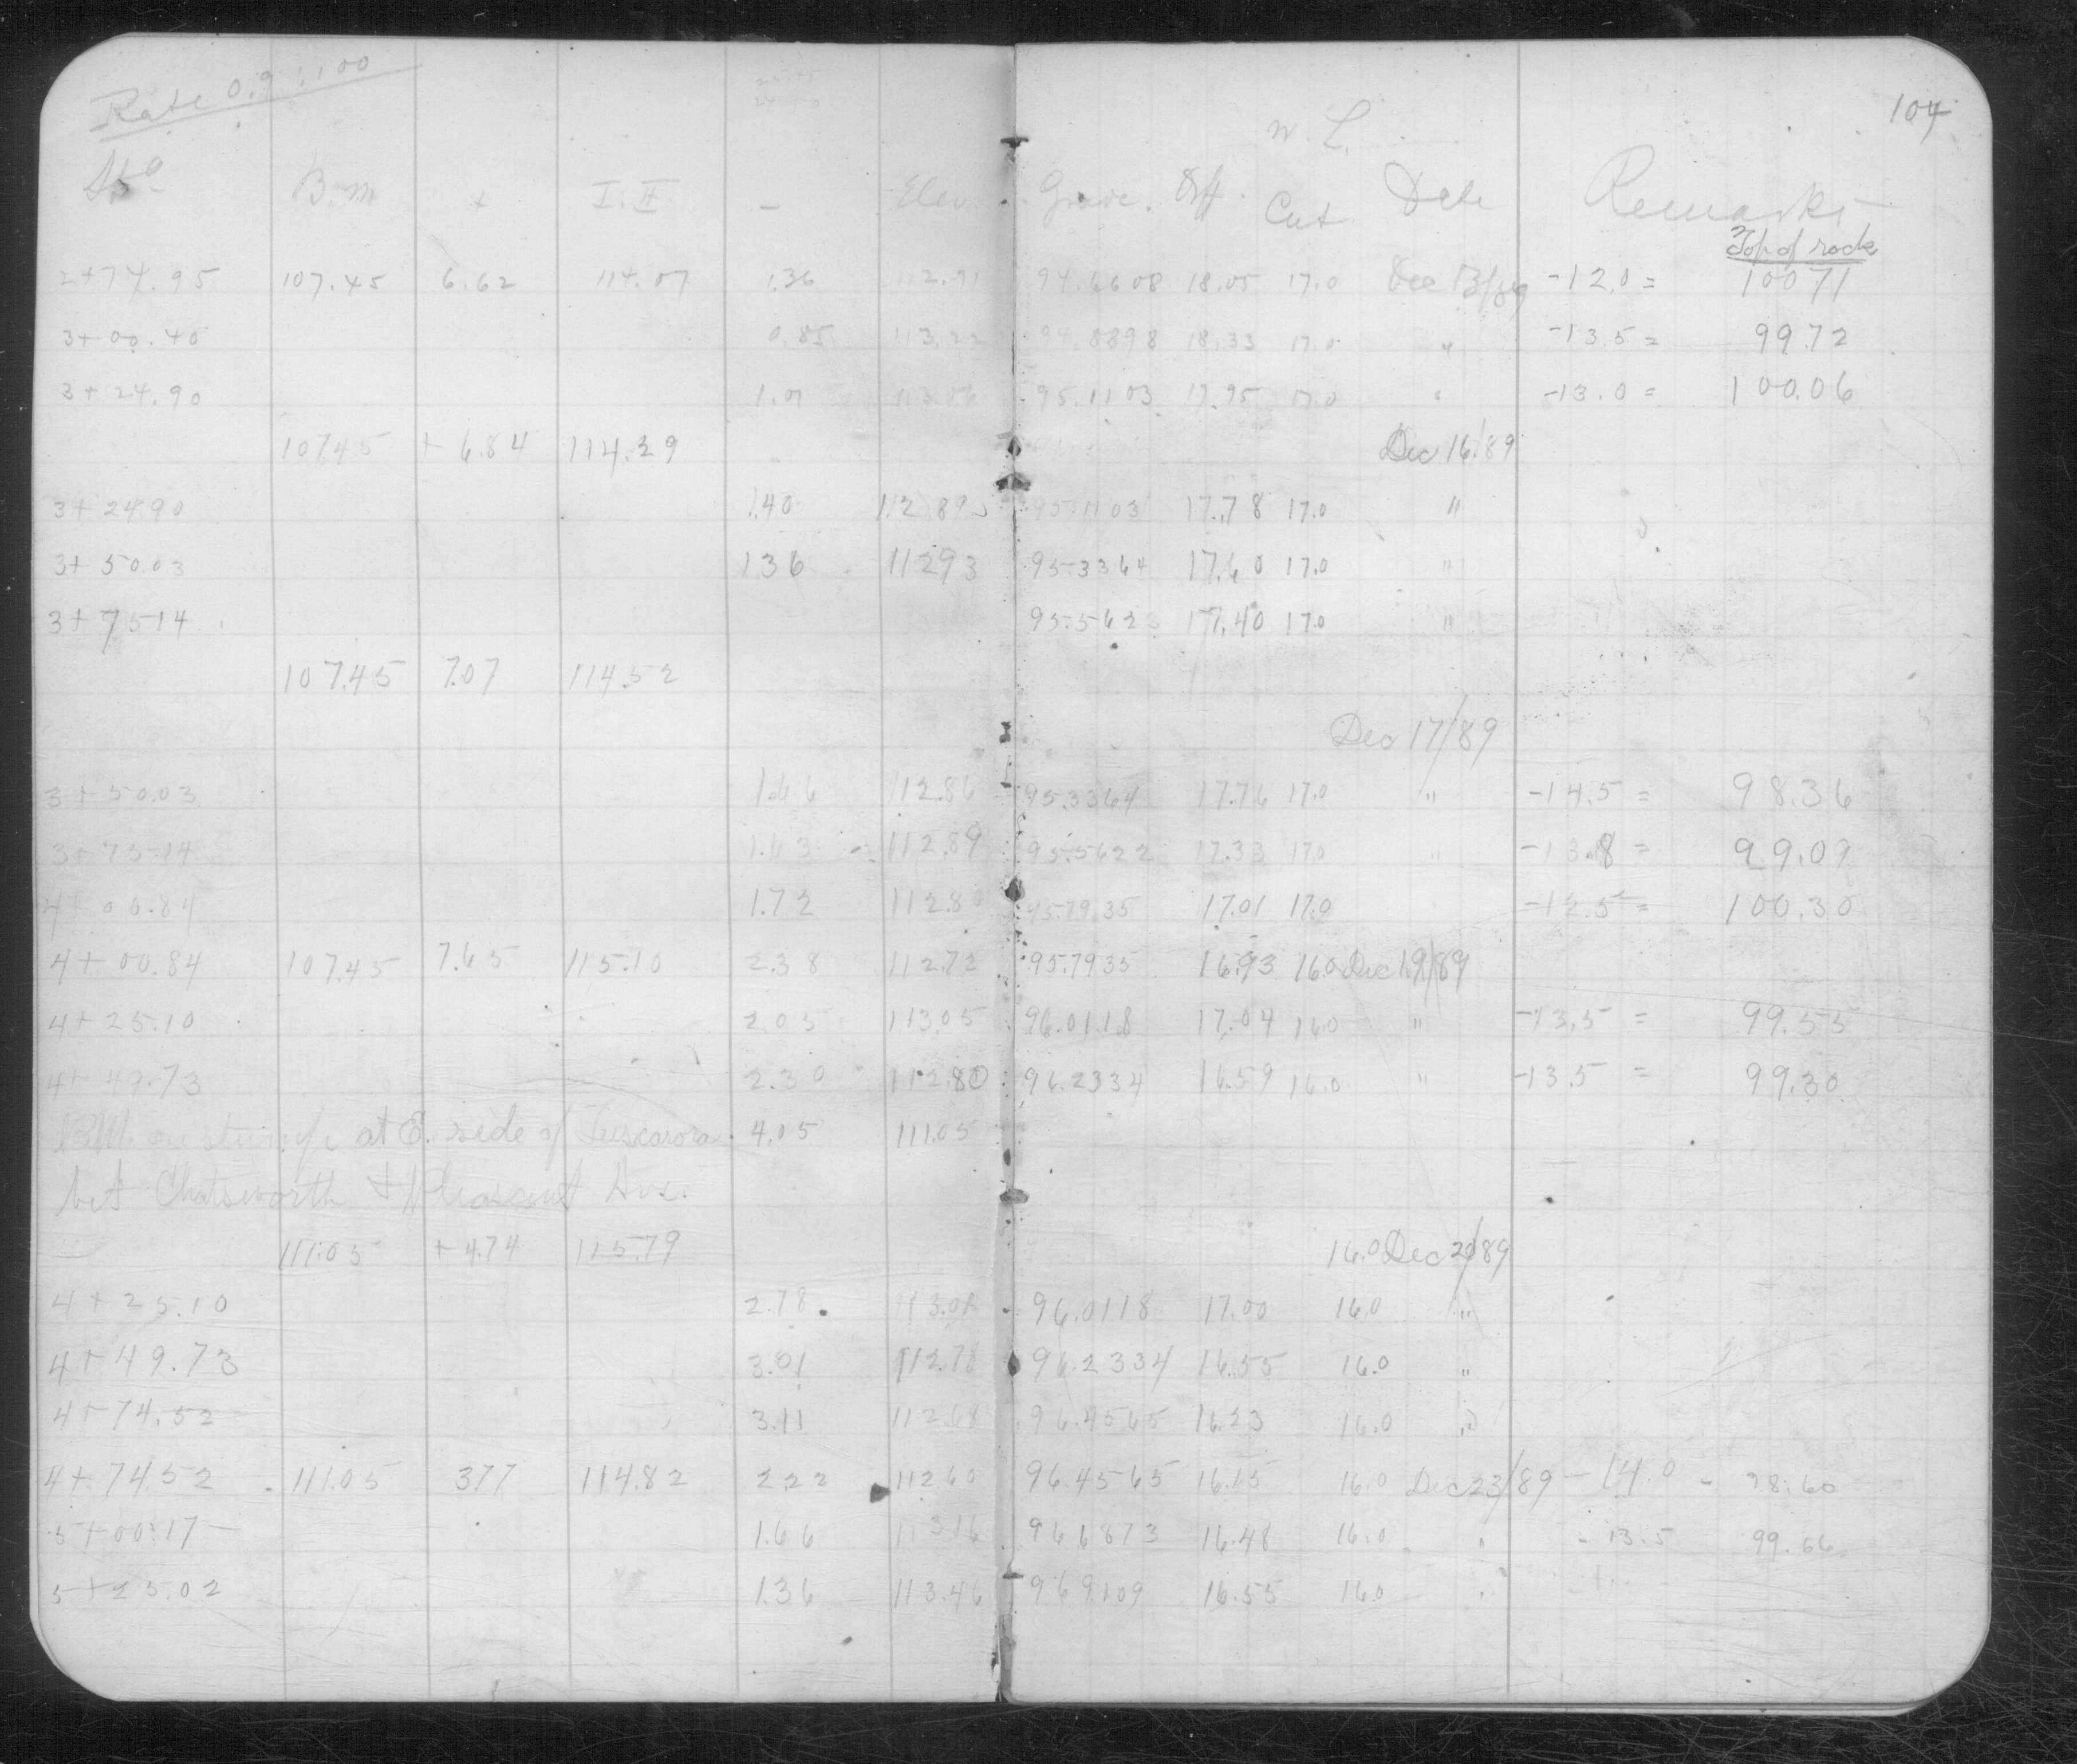 104
Rate 0.9 : 100
W. L.
Sta B.M + I. H - Elev. Grade. Diff. Cut Date Remarks
Top of rock
2+74.95 107.45 6.62 114.07 1.36 112.71 94.6608 18.05 17.0 Dec 13/89 -12.0 = 100.71
3+00.40 0.85 113.22 94.8898 18.33 17.0 " -13.5 = 99.72
3+24.90 1.01 113.06 95.1103 17.95 17.0 " -13.0 = 100.06
107.45 + 6.84 114.29 Dec 16/89
3+24.90 1.40 112.89 95.1103 17.78 17.0 "
3+50.03 1.36 112.93 95.3364 17.60 17.0 "
3+75.14 95.562 17.40 17.0 "
107.45 7.07 114.52
Dec 17/89
3+50.03 1.66 112.86 95.3364 17.76 17.0 " -14.5 = 98.36
3+75.14 1.63 112.89 95.5622 17.33 17.0 " -13.8 = 99.09
4+00.84 1.72 112.80 95.7935 17.01 17.0 -12.5 = 100.30
4+00.84 107.45 7.65 115.10 2.38 112.72 95.7935 16.93 16.0 Dec 19/89
4+25.10 2.05 113.05 96.0118 17.04 16.0 " -13.5 = 99.55
4+49.73 2.30 112.80 96.2334 16.59 16.0 " -13.5 = 99.30
B.M. on at E. side of Tuscarora 4.05 111.05
bet Chatsworth & Pleasant Ave.
111.05 + 4.74 115.79 16.0 Dec 20/89
4+25.10 2.78 113.01 96.0118 17.00 16.0 "
4+49.73 3.01 112.78 96.2334 16.55 16.0 "
4+74.52 3.11 112.68 96.4565 16.23 16.0 "
4+74.52 111.05 3.77 114.82 2.22 112.60 96.4565 16.15 16.0 Dec 23/89 - 14.0 - 98.60
5+00.17 1.66 113.16 96.6873 16.48 16.0 " - 13.5 99.66
5+25.02 1.36 113.46 96.9109 16.55 16.0 "